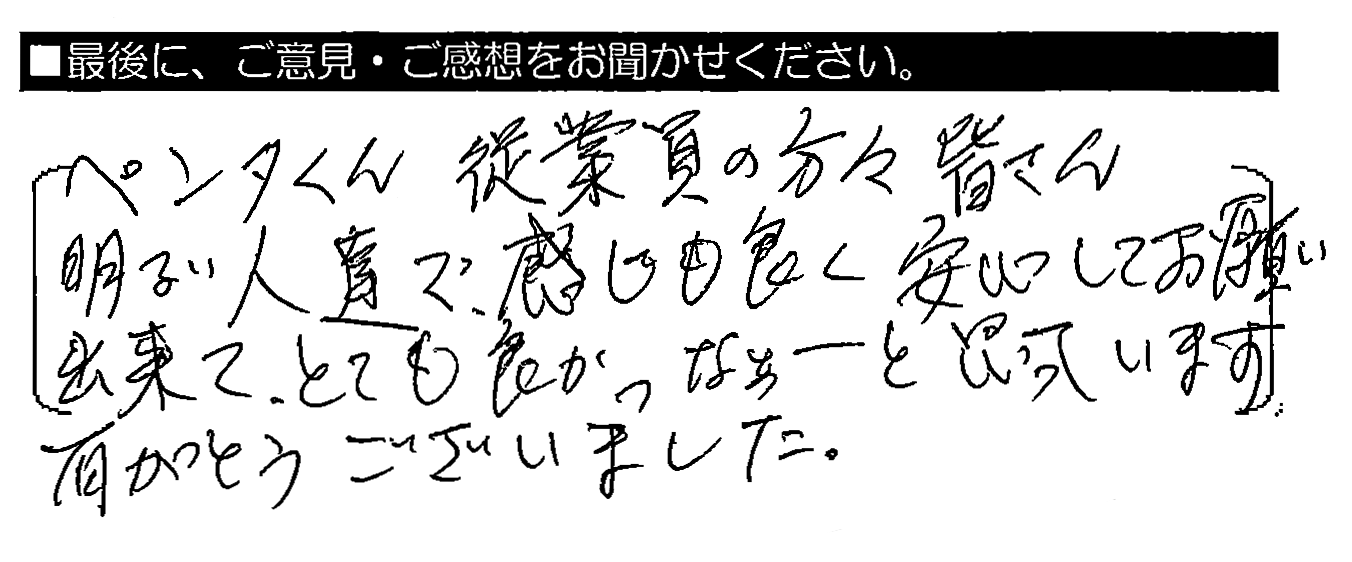 ■最後に、ご意見・ご感想をお聞かせください。
ペンタくん 従業員の方々 皆さん
明るい人達で、感じも良く 安心してお願い
出来て、とても良かったなぁーと思っています。
有がとうございました。